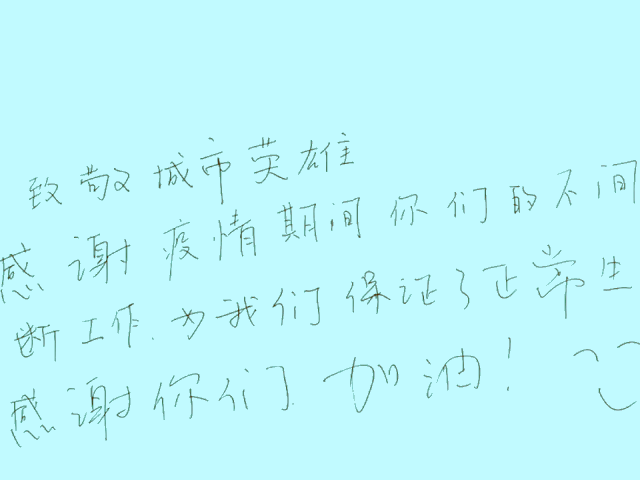 致敬城市英雄
感谢疫情期间你们的不间
断工作.为我们保证了正常生
感谢你们.加油!